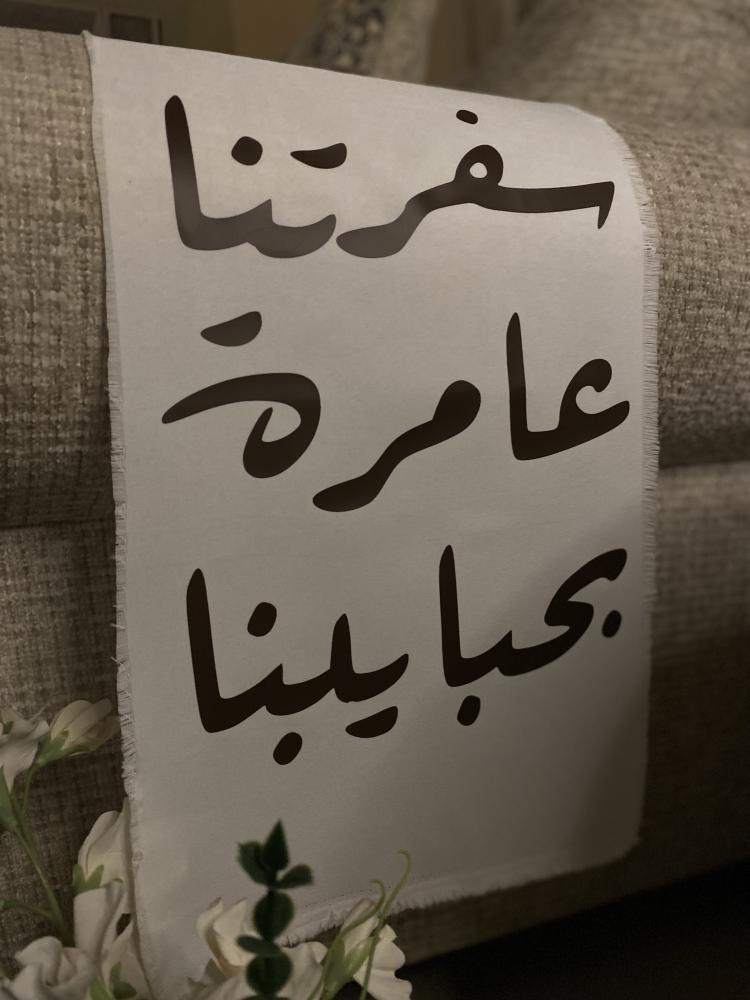 سفرتنا
عامرة
بحبايبنا